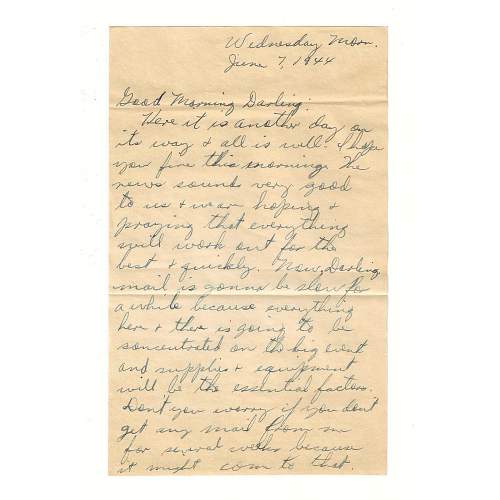 Wednesday Morn.
June 7, 1944
Good Morning Darling:
Here it is another day on
its way & all is well. I hope
you fine this morning. The
news sounds very good
to us & wear hoping &
praying that everything
will work out for the
best & quickly. Now, Darling
mail is gonna be slow for
a while because everything
here & there is going to be
concentrated on the big event
and supplies & equipment
will be the essential factors.
Don't you worry if you don't
get my mail from me
for several weeks because
it might come to that.